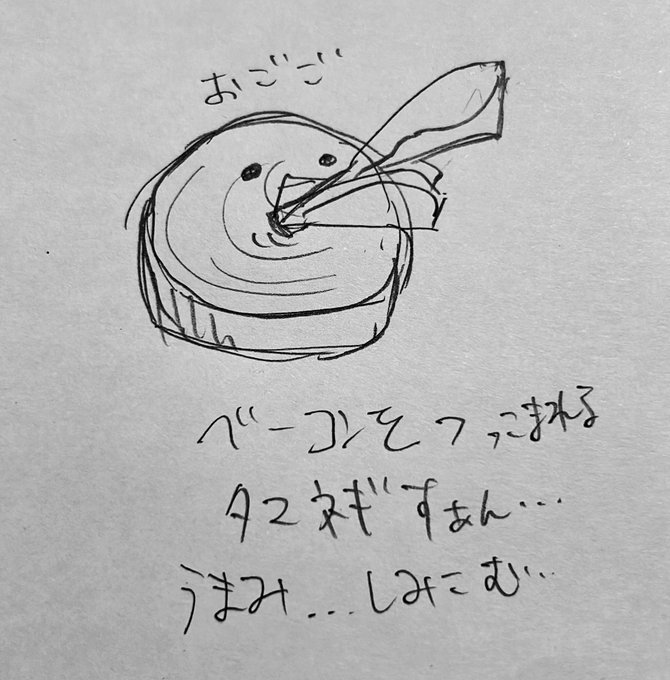 おごご
ベーコンをつっこまれる
タマネギすぁん…
うまみ…しみこむ…